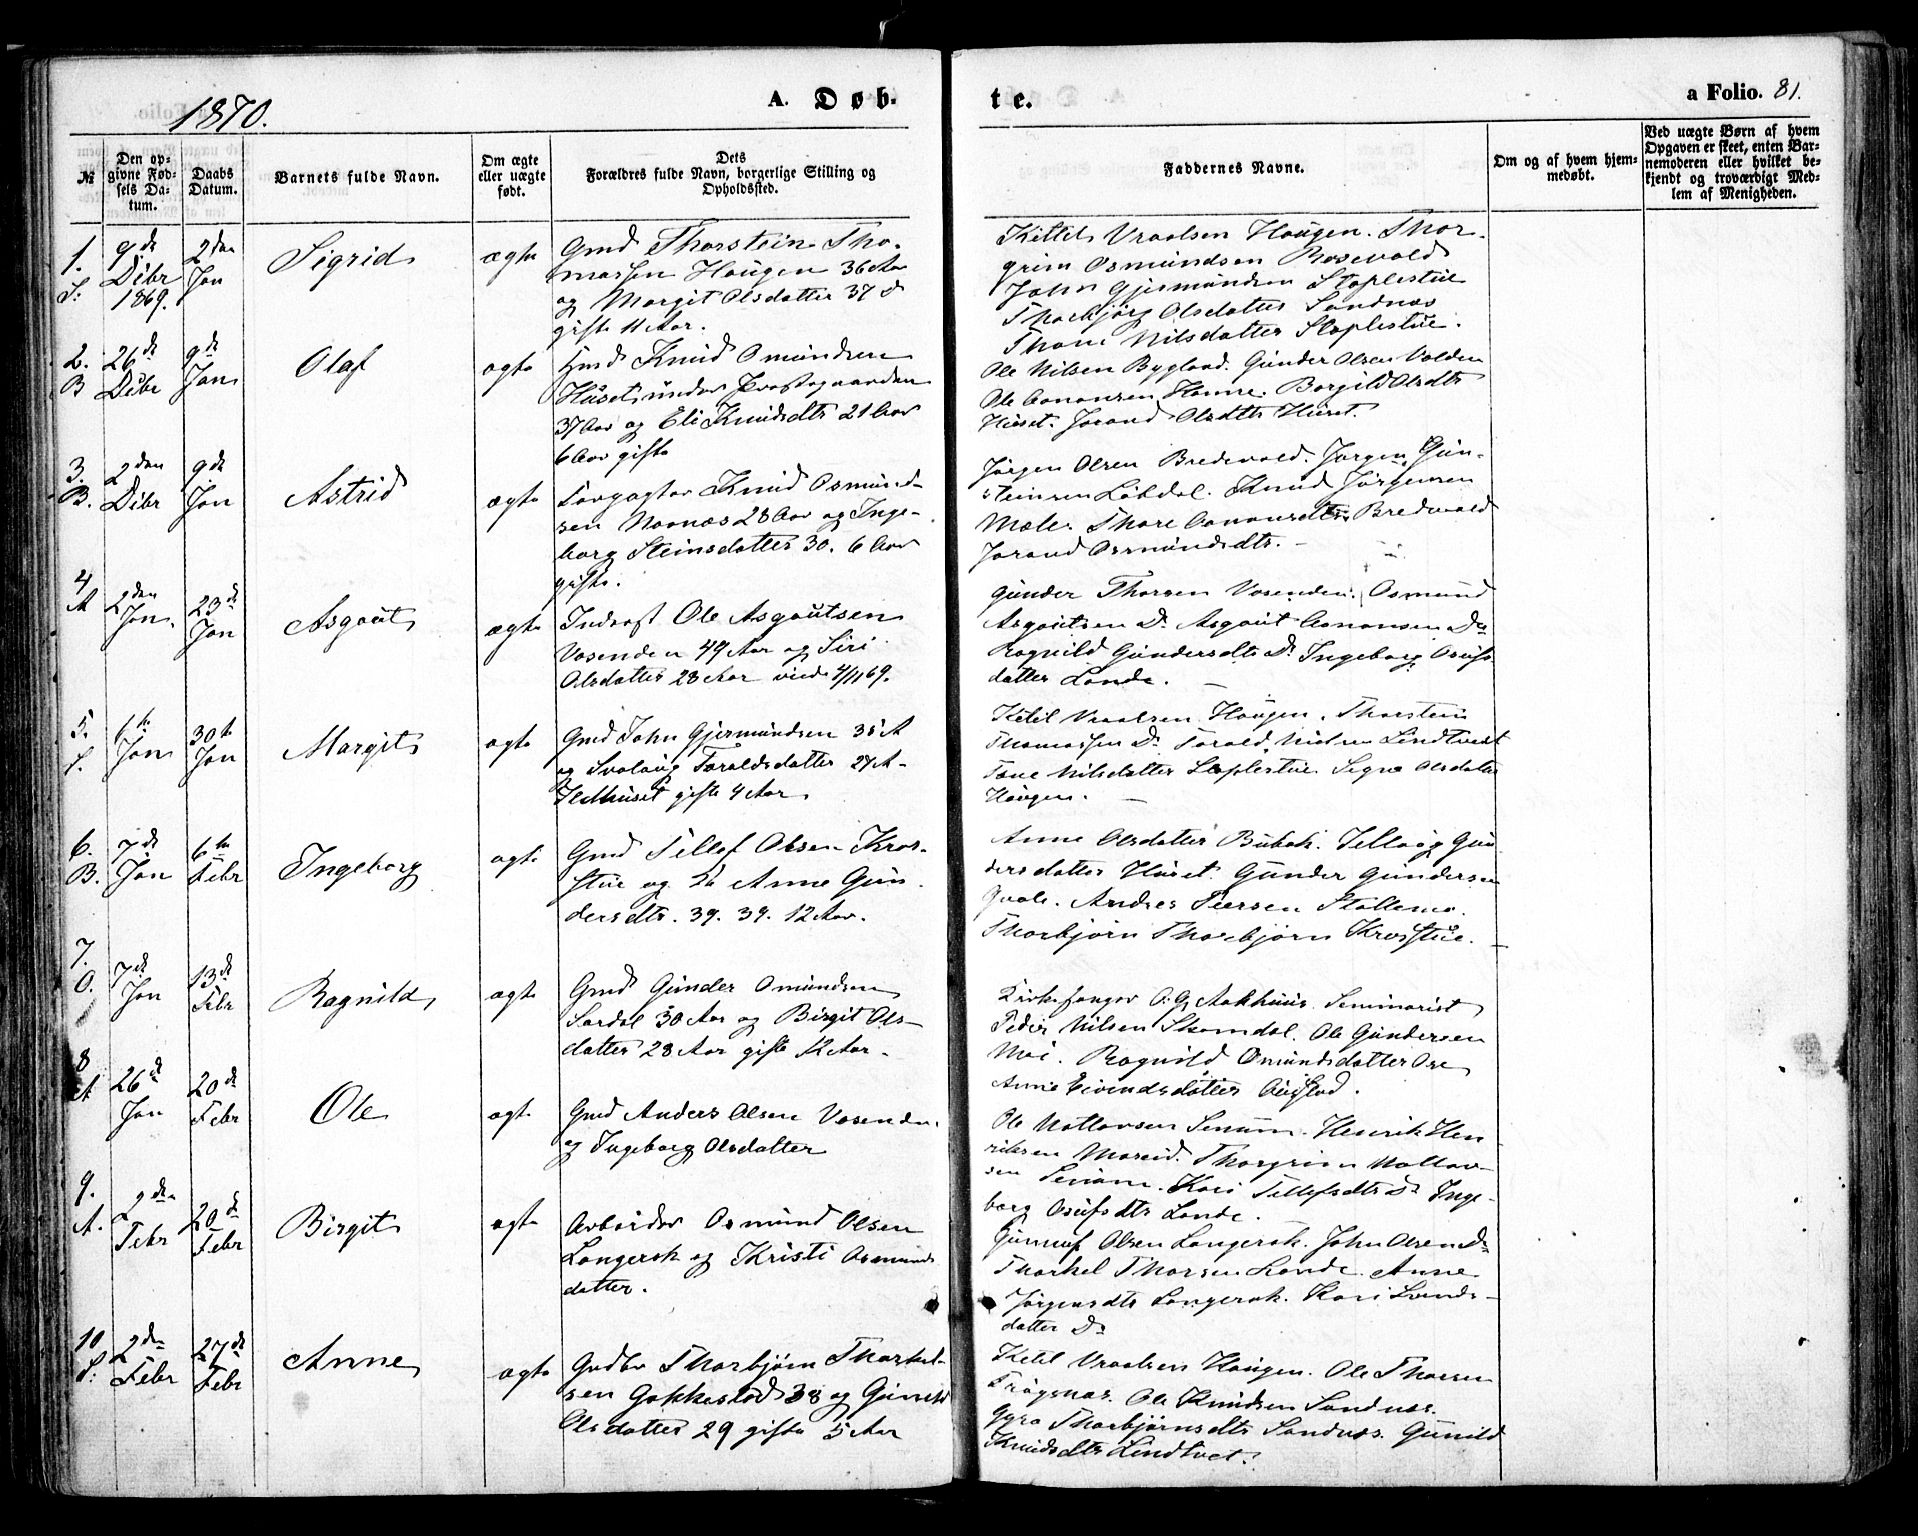 1870.
A. Døb-
te.
a Folio. 81.
№
Den op-
givne Fød-
sels Da-
tum.
Daabs
Datum.
Barnets fulde Navn.
Om ægte
eller uægte
født.
Dets
Forældres fulde Navn, borgerlige Stilling og
Opholdssted.
Faddernes Navne.
Om og af hvem hjem-
medøbt.
Ved uægte Børn af hvem
Opgaven er skeet, enten Bar-
nemoderen eller hvilket be-
kjendt og troværdigt Med-
lem af Menigheden.
1.
S.
9de
Debr
1869.
2den
Jan
Sigrid
ægte
Gmd Thorstein Tho-
massen Haugen 36 Aar
og Margit Olsdatter 37 d
gifte 11 Aar.
Kittil Vraalsen Haugen. Thor-
grim Osmundsen Rosevold
John Gjermundsen Staplestue
Thorbjörg Olsdatter Sandnæs
Thone Nilsdatter Staplestue.
2.
B
26de
Debr
9de
Jan
Olaf
ægte
Hmd Knud Omundsen
Huset under Præstegaarden
37 Aar og Eli Knudsdtr 21 Aar
6 Aar gifte
Ole Nilsen Bygland. Gunder Olsen Valden
Ole Aanansen Hanne. Borgild Olsdtr
Huset. Jorand Olsdtr Huset.
3.
B.
2den
Debr
9de
Jan
Astrid
ægte
Forpagter Knud Osmund-
sen Noanæs 28 Aar og Inge-
borg Steinsdatter 30. 6 Aar
gifte.
Jörgen Olsen Bredevold. Jørgen Gun-
steinsen Løbdal. Knud Jörgensen
Mole. Thore Aanansdtr Bredvold
Jorand Osmundsdtr.
4
A
2den
Jan.
23de
Jan
Asgaut
ægte
Inderst Ole Asgautsen
Vasenden 49 Aar og Siri
Olsdatter 28 Aar viede 4/11 69.
Gunder Thorsen Vasenden. Osmund
Asgautsen Do Asgaut Aanonsen Do
Ragnild Gundersdtr Do Ingeborg Osufs
datter Lande.
5.
S.
6te
Jan
30te
Jan
Margit
ægte
Gmd John Gjermundsen 35 A
og Svalaug Taraldsdatter 27 A-
Ildhuset gifte 4 Aar
Ketil Vraalsen Haugen. Thorstein
Thomassen Do Torald Nilsen Lindtveit
Tone Nilsdatter Staplestue Signe Olsdatter
Haugen.
6.
B.
7de
Jan
6te
Febr
Ingeborg
ægte
Gmd Tellef Olsen Kros-
stue og Anne Gun-
dersdtr. 39. 39. 12 Aar.
Anne Olsdatter Bubak. Tellaug Gun-
dersdatter Huset. Gunder Gundersen
Qvale. Andres Peersen Støllemo.
Thorbjørn Thorbjørn Krosstue.
7.
O.
7de
Jan
13de
Febr
Ragnild
ægte
Gmd Gunder Omundsen
Sordal 30 Aar og Birgit Ols-
datter 28 Aar gifte 12 Aar.
Kirkesanger O. G. Aakhuus. Seminarist
Peder Nilsen Skomdal. Ole Gundersen
Moi. Ragnild Omundsdatter Ose
Anne Eivindsdatter Augstad.
8
A
26de
Jan
20de
Febr
Ole
ægte
Gmd Anders Olsen Vasenden
og Ingeborg Olsdatter
Ole Nottovsen Senum. Henrik Hen-
riksen Moseid. Thorgrim Nottov-
sen Senum. Kari Tellefsdtr Do Inge-
borg Osufsdtr Lande.
9.
A.
2den
Febr
20de
Febr
Birgit
ægte
Arbeider Osmund Olsen
Langerak og Kristi Osmunds
datter.
Gunnuf Olsen Langerak. John Olsen Do
Thorkel Thorsen Lande Anne
Jörgensdtr Langerak. Kari Lvends-
datter Do
10
S.
2den
Febr
27de
Febr
Anne
ægte
Gaardbr Thorbjørn Thorkel-
sen Gakkestad 38 og Gunild
Olsdatter 29 gifte 5 Aar
Ketil Vraalsen Haugen. Ole Thorsen
Frøysnæs. Ole Knudsen Sandnæs.
Gyro Thorbjørnsdtr Sandnæs. Gunild
Knudsdtr Lindtvet.